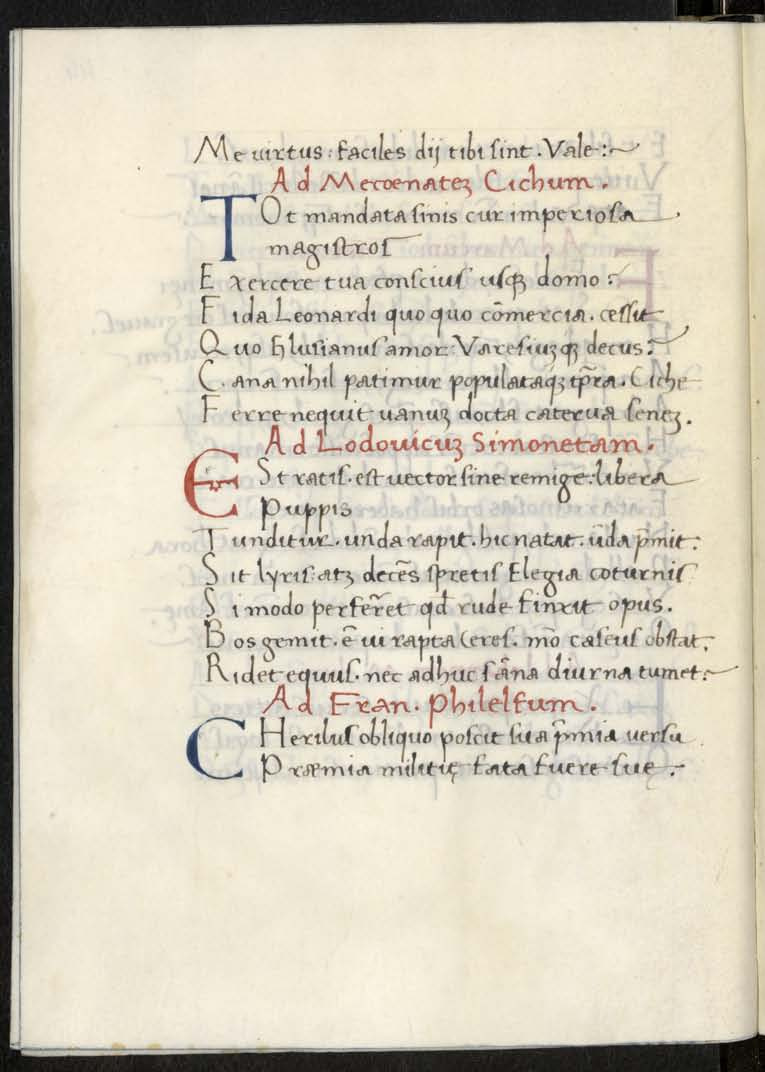 Me uirtus: faciles dij tibi sint. Vale:~
Ad Mecoenateʒ Cichum.
TOt mandata sinis cur imperiosa
magistros
Exercere tua conscius usqꝫ domo:
Fida Leonardi quo quo cōmercia. cessit
Quo hlusianus amor: Varesiuʒqꝫ decus:
C. ana nihil patimur populataqꝫ tp̄ra. Ciche
Ferre nequit uanuʒ docta caterua seneʒ.
Ad Lodouicuʒ Simonetam.
ESt ratis. est uector sine remige: libera
Puppis
Tunditur. unda rapit. hic natat. ūda p̄mit:
Sit lyris: atqꝫ decēs spretis Elegia coturnis
Si modo perferret qd̄ rude finxit opus.
Bos gemit. ē ui rapta Ceres. mō caseus obstat.
Ridet equus. nec adhuc sāna diurna tumet:~
Ad Fran. Philelfum.
CHerilus obliquo poscit sua p̄mia uersu
Præmia militię fata fuere suę.